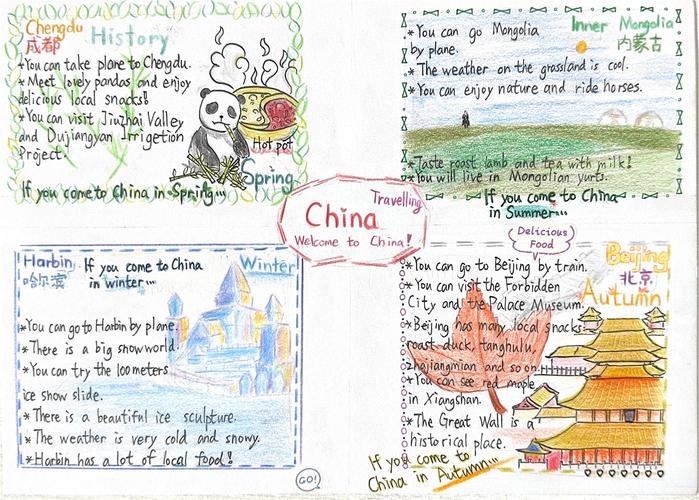 Chengdu
成都
History
*You can take plane to Chengdu.
*Meet lovely pandas and enjoy
delicious local snacks!
*You can visit Jiuzhai Valley
and Dujiangyan Irrigetion
Project.
Hot pot
Spring
If you come to China in Spring...
Inner Mongolia
内蒙古
*You can go Mongolia
by plane.
*The weather on the grassland is cool.
*You can enjoy nature and ride horses.
*Taste roast lamb and tea with milk!
*You will live in Mongolian yurts.
If you come to China
in Summer...
Travelling
China
Welcome to China!
Harbin
哈尔滨
If you come to China
in winter...
Winter
*You can go to Harbin by plane.
*There is a big snowworld.
*You can try the 100meters
ice snow slide.
*There is a beautiful ice sculpture.
*The weather is very cold and snowy.
*Harbin has a lot of local food!
GO!
Delicious
Food
Beijing
北京
Autumn
*You can go to Beijing by train.
*You can visit the Forbidden
City and the Palace Museum.
*Beijing has many local snacks:
roast duck, tanghulu,
zhajiangmian and so on.
*You can see red maple
in Xiangshan.
*The Great Wall is a
historical place.
If you come to
China in Autumn...